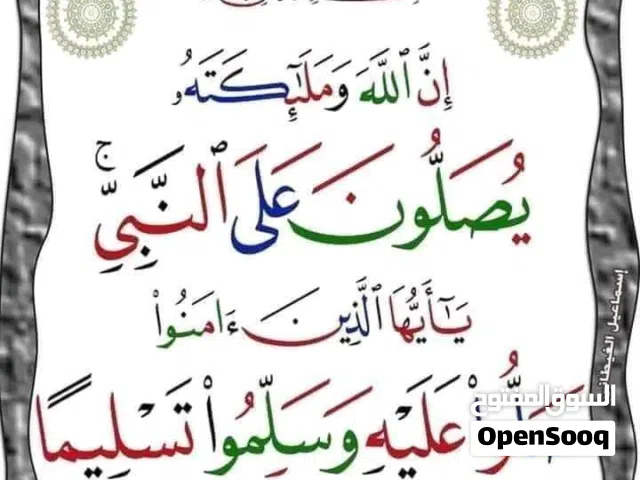 إِنَّ ٱللَّهَ وَمَلَٰٓئِكَتَهُۥ
يُصَلُّونَ عَلَى ٱلنَّبِىِّ ۚ
يَٰٓأَيُّهَا ٱلَّذِينَ ءَامَنُوا۟
عَلَيْهِ وَسَلِّمُوا۟ تَسْلِيمًا
إسماعيل الغيطاني
السوق المفتوح
OpenSooq